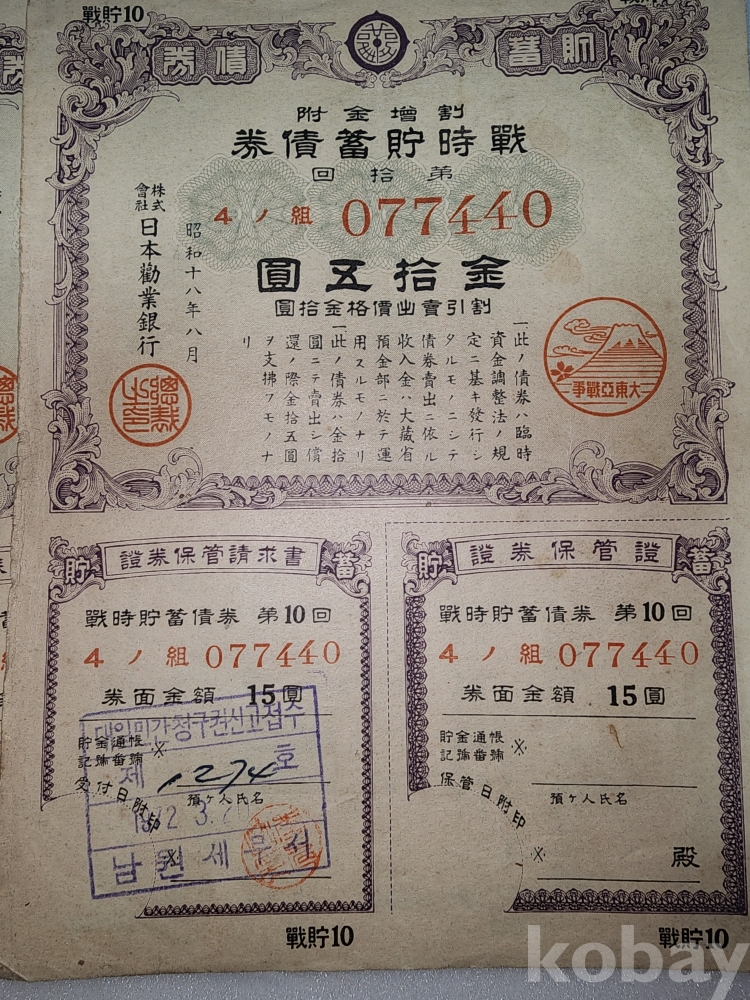 戰貯10
券債
蓄貯
附金增割
券債蓄貯時戰
回拾第
4ノ組 077440
圓五拾金
圓拾金格價出賣引割
一此ノ債券ハ臨時
資金調整法ノ規
定ニ基キ發行シ
タルモノニシテ
債券賣出ニ依ル
收入金ハ大藏省
預金部ニ於テ運
用スルモノナリ
一此ノ債券ハ金拾
圓ニテ賣出シ償
還ノ際金拾五圓
ヲ支拂フモノナ
リ
昭和十八年八月
株式會社日本勸業銀行
總裁之印
爭戰亞東大
貯 證券保管請求書 蓄
戰時貯蓄債券 第10回
4ノ組 077440
券面金額 15圓
대일민간청구권신고접수
貯金通帳
記號番號 ※
제 1274 호
受付日附印
預ケ人氏名
※
남원세무서
戰貯10
貯 證券保管證 蓄
戰時貯蓄債券 第10回
4ノ組 077440
券面金額 15圓
貯金通帳
記號番號 ※
保管日附印
預ケ人氏名
※ 殿
戰貯10
kobay